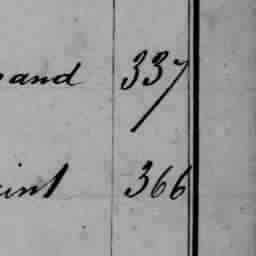 and 337
int 366